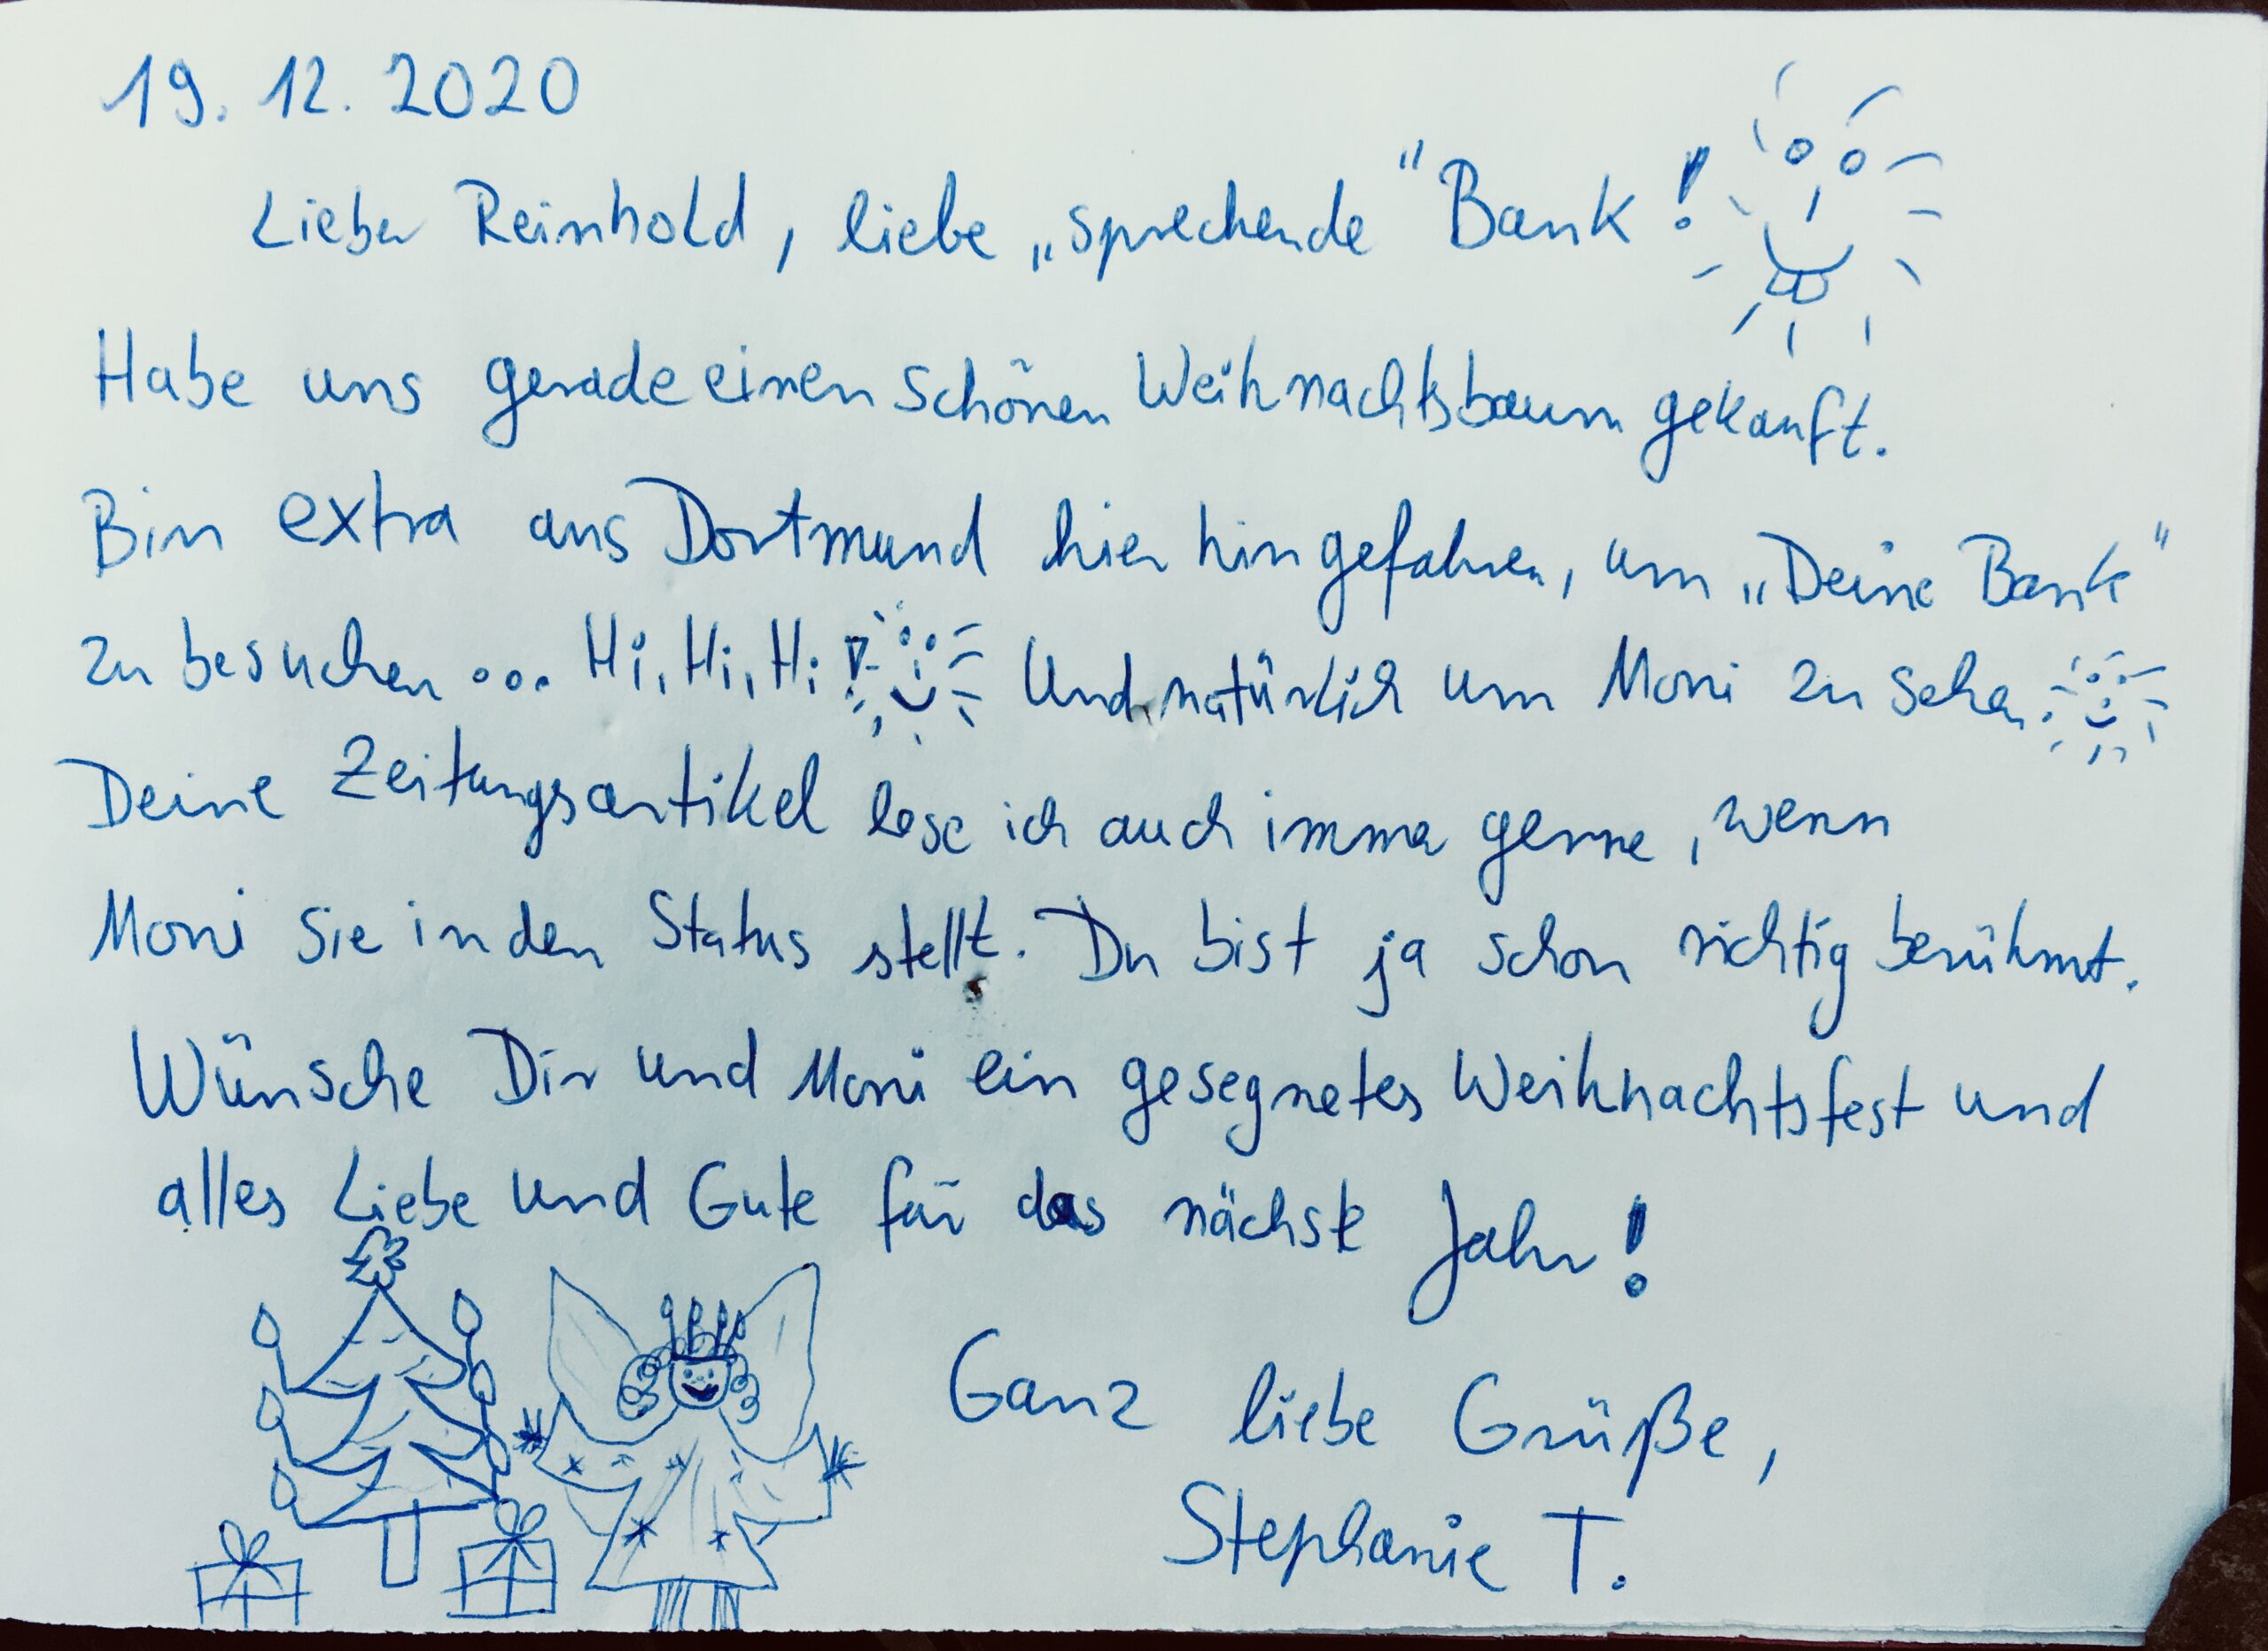 19. 12. 2020
Lieber Reinhold, liebe „sprechende" Bank!
Habe uns gerade einen schönen Weihnachtsbaum gekauft.
Bin extra aus Dortmund hier hin gefahren, um „Deine Bank"
zu besuchen ... Hi, Hi, Hi! Und natürlich um Moni zu sehen.
Deine Zeitungsartikel lese ich auch immer gerne, wenn
Moni sie in den Status stellt. Du bist ja schon richtig berühmt.
Wünsche Dir und Moni ein gesegnetes Weihnachtsfest und
alles Liebe und Gute für das nächste Jahr!
Ganz liebe Grüße,
Stephanie T.